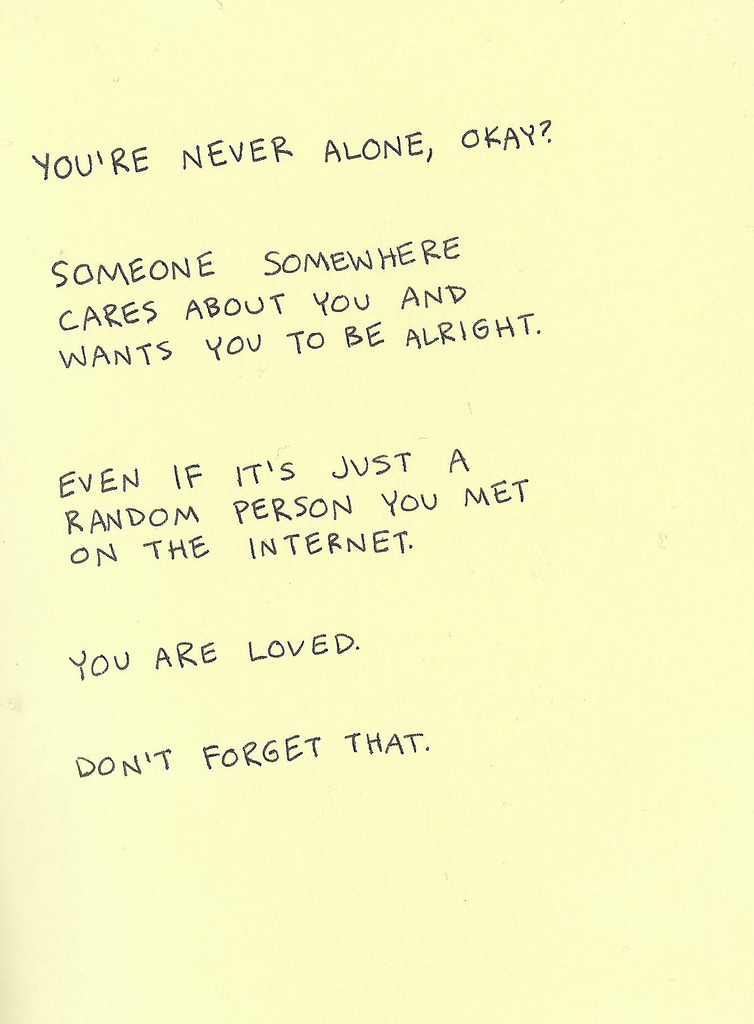 YOU'RE NEVER ALONE, OKAY?
SOMEONE SOMEWHERE
CARES ABOUT YOU AND
WANTS YOU TO BE ALRIGHT.
EVEN IF IT'S JUST A
RANDOM PERSON YOU MET
ON THE INTERNET.
YOU ARE LOVED.
DON'T FORGET THAT.